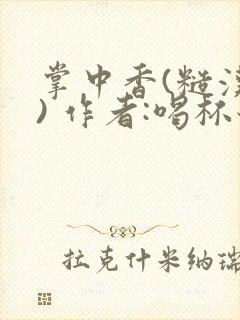 掌中香(糙
) 作者:喝杯
拉克什米纳瑞